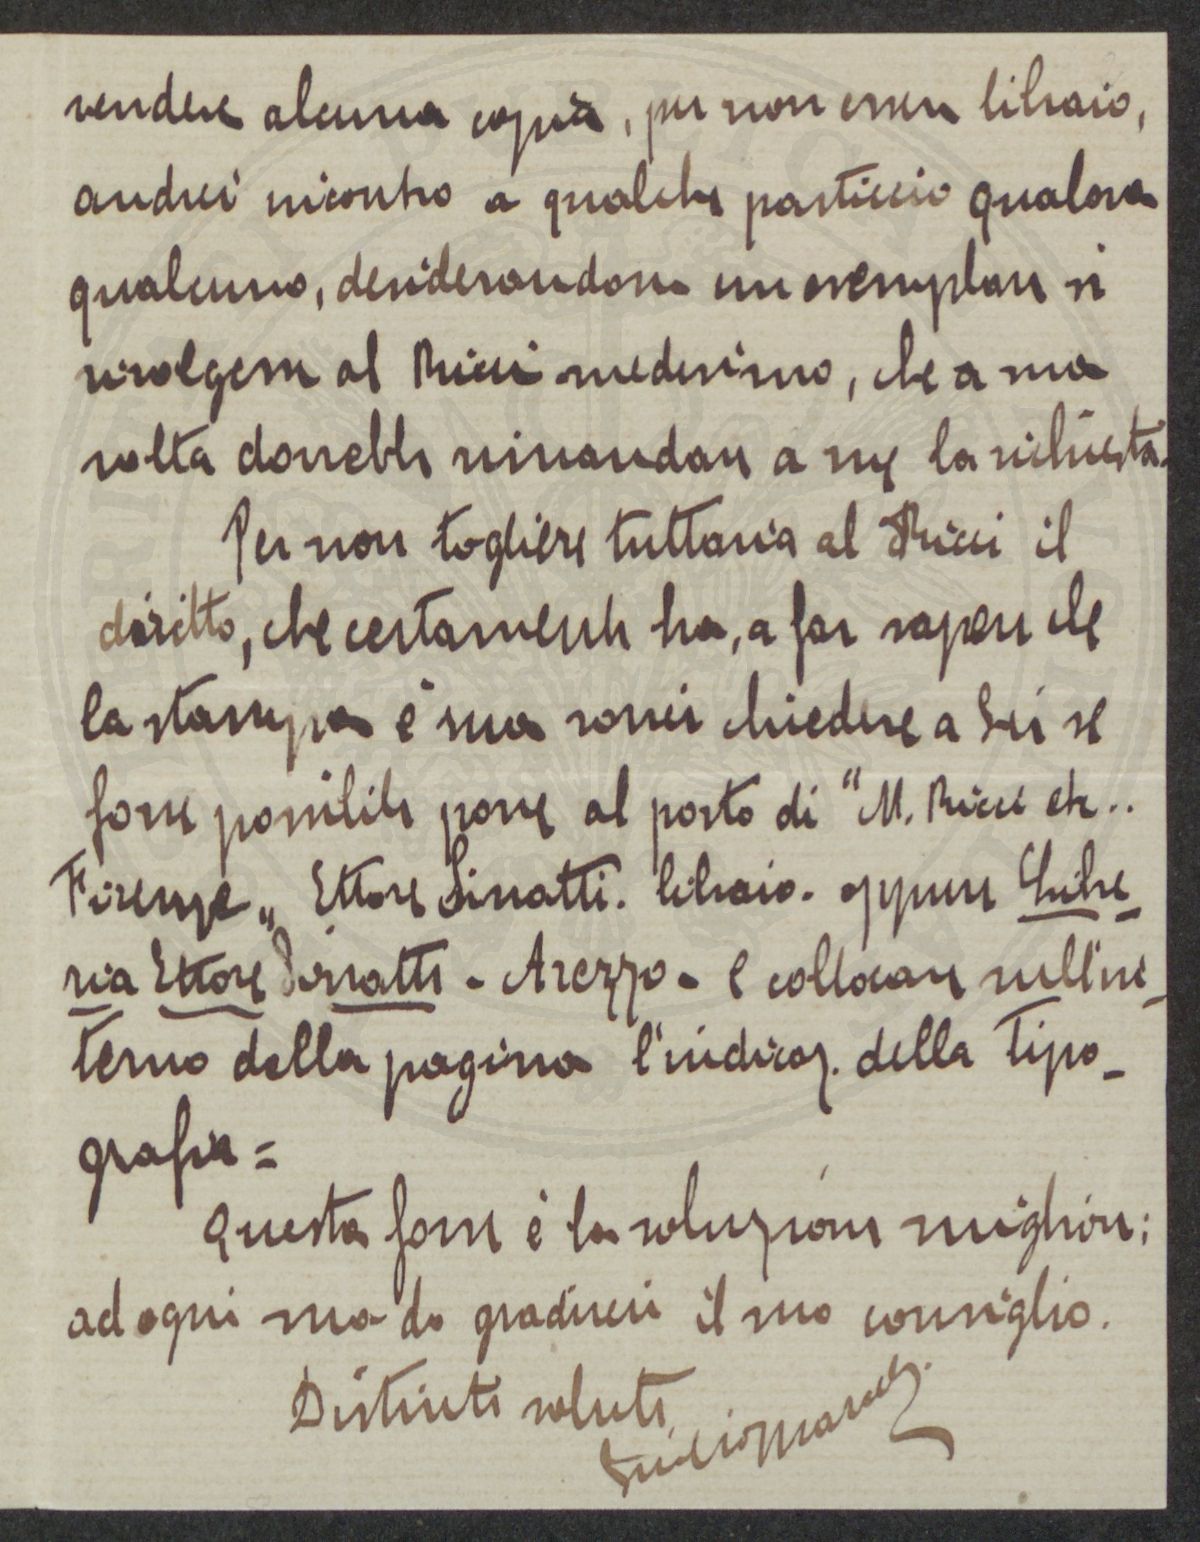 vendere alcuna copia, per non essere libraio,
andrei incontro a qualche pasticcio qualora
qualcuno, desiderandone un esemplare si
rivolgesse al Ricci medesimo, che a sua
volta dovrebbe rimandare a me la richiesta.
Per non togliere tuttavia al Ricci il
diritto, che certamente ha, a far sapere che
la stampa è sua vorrei chiedere a Lei se
fosse possibile porre al posto di "M. Ricci etc..
Firenze„ Ettore Sinatti. libraio. oppure Libre-
ria Ettore Sinatti - Arezzo - e collocare nell'in-
terno della pagina l'indicaz. della Tipo-
grafia =
Questa forse è la soluzione migliore;
ad ogni modo gradirei il suo consiglio.
Distinti saluti